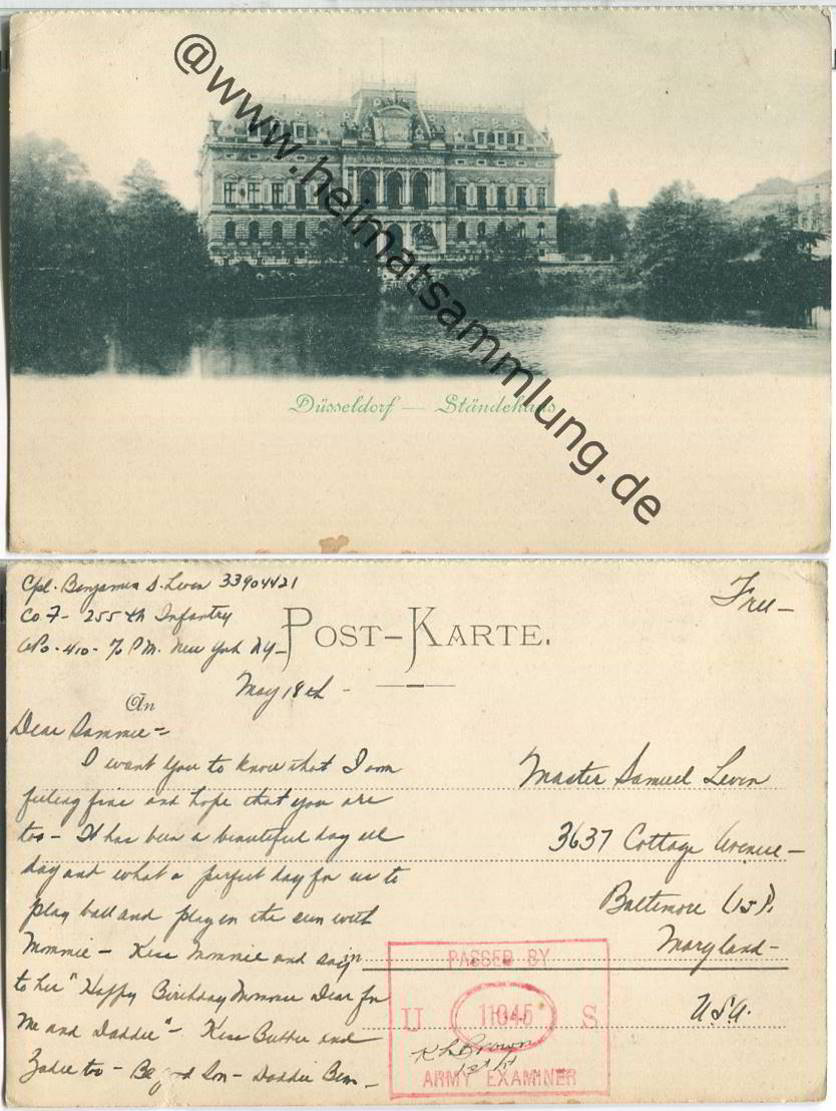 @www.heimatsammlung.de
Düsseldorf — Ständehaus
Cpl. Benjamin S. Leven 33904421
Co F - 255th Infantry
APO - 410 - % P.M. New York NY -
Free -
POST-KARTE.
May 18th -
An
Dear Sammie -
I want you to know that I am
feeling fine and hope that you are
too - It has been a beautiful day all
day and what a perfect day for us to
play ball and play in the sun with
Mommie - Kiss Mommie and say
to her "Happy Birthday Mommie Dear for
Me and Daddie" - Kiss Bubbie and
Zadie too - Be good Son - Daddie Ben -
Master Samuel Leven
3637 Cottage Avenue -
Baltimore (15),
Maryland -
USA.
in
PASSED BY
U 11045 S
ARMY EXAMINER
Brown
1st Lt